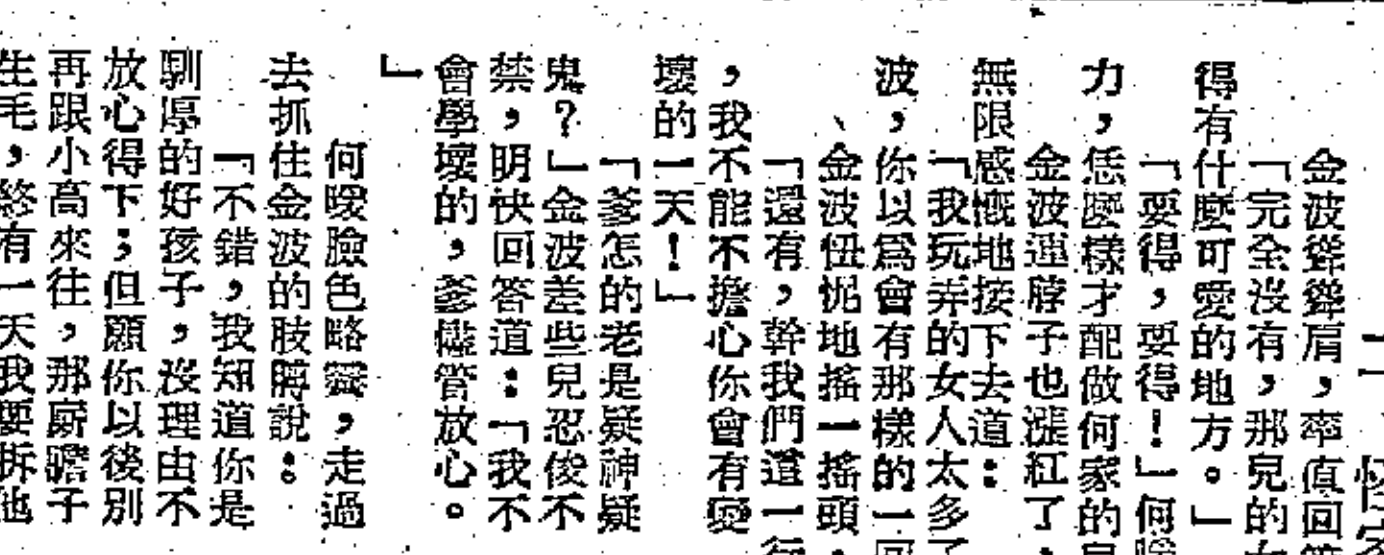 一、怪客
金波聳聳肩，率直回答
「完全沒有，那兒的女
得有什麼可愛的地方。」
「要得，要得！」何暖
力，恁麼樣才配做何家的
金波連脖子也漲紅了，
無限感慨地接下去道：
「我玩弄的女人太多了
波，你以爲會有那樣的一
金波忸怩地搖一搖頭，
「還有，幹我們這一行
，我不能不擔心你會有變
壞的一天！」
「爹怎的老是疑神疑
鬼？」金波差些兒忍俊不
禁，明快回答道：「我不
會學壞的，爹儘管放心。
」
何暖臉色略霽，走過
去抓住金波的肢膊說：
「不錯，我知道你是
馴厚的好孩子，沒理由不
放心得下；但願你以後別
再跟小高來往，那厮瞻子
生毛，終有一天我要拆他